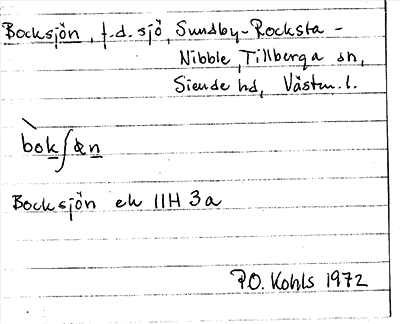 Bocksjön, f.d. sjö, Sundby-Rocksta-
Nibble, Tillberga sn,
Siende hd, Västm. l.
bokʃön
Bocksjön ek 11H 3a
P.O. Kohls 1972